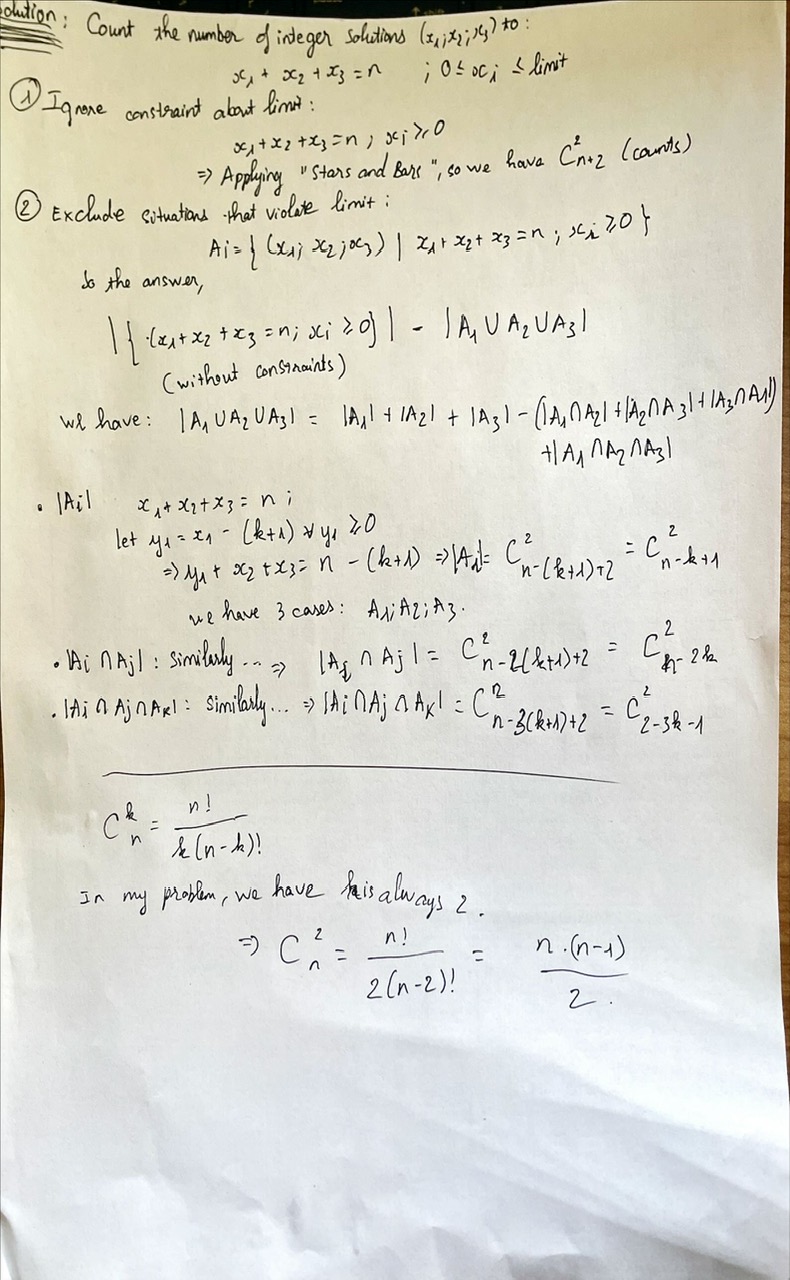 olution: Count the number of integer solutions (x₁; x₂; x₃) to:
x₁ + x₂ + x₃ = n ; 0 ≤ xᵢ ≤ limit
① Ignore constraint about limit:
x₁ + x₂ + x₃ = n ; xᵢ ≥ 0
⇒ Applying "Stars and Bars", so we have C²ₙ₊₂ (counts)
② Exclude situations that violate limit:
Aᵢ = { (x₁; x₂; x₃) | x₁ + x₂ + x₃ = n ; xᵢ ≥ 0 }
So the answer,
|{(x₁ + x₂ + x₃ = n; xᵢ ≥ 0}| - |A₁ ∪ A₂ ∪ A₃|
(without constraints)
We have: |A₁ ∪ A₂ ∪ A₃| = |A₁| + |A₂| + |A₃| - (|A₁ ∩ A₂| + |A₂ ∩ A₃| + |A₃ ∩ A₁|)
+ |A₁ ∩ A₂ ∩ A₃|
• |Aᵢ| x₁ + x₂ + x₃ = n ;
let y₁ = x₁ - (k+1) ∀ y₁ ≥ 0
⇒ y₁ + x₂ + x₃ = n - (k+1) ⇒ |A₁| = C²ₙ₋₍ₖ₊₁₎₊₂ = C²ₙ₋ₖ₊₁
we have 3 cases: A₁; A₂; A₃.
• |Aᵢ ∩ Aⱼ| : Similarly... ⇒ |Aᵢ ∩ Aⱼ| = C²ₙ₋₂₍ₖ₊₁₎₊₂ = C²ₙ₋₂ₖ
• |Aᵢ ∩ Aⱼ ∩ Aₖ| : Similarly... ⇒ |Aᵢ ∩ Aⱼ ∩ Aₖ| = C²ₙ₋₃₍ₖ₊₁₎₊₂ = C²₂₋₃ₖ₋₁
Cᵏₙ = n! / k(n-k)!
In my problem, we have k is always 2.
⇒ C²ₙ = n! / 2(n-2)! = n.(n-1) / 2.